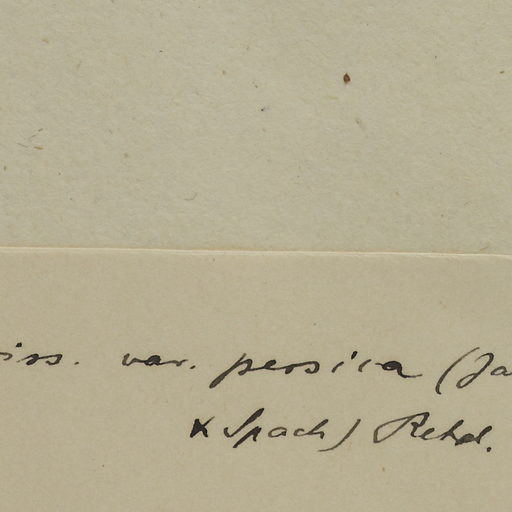 iss. var. persica (Ja
& Spach) Rehd.